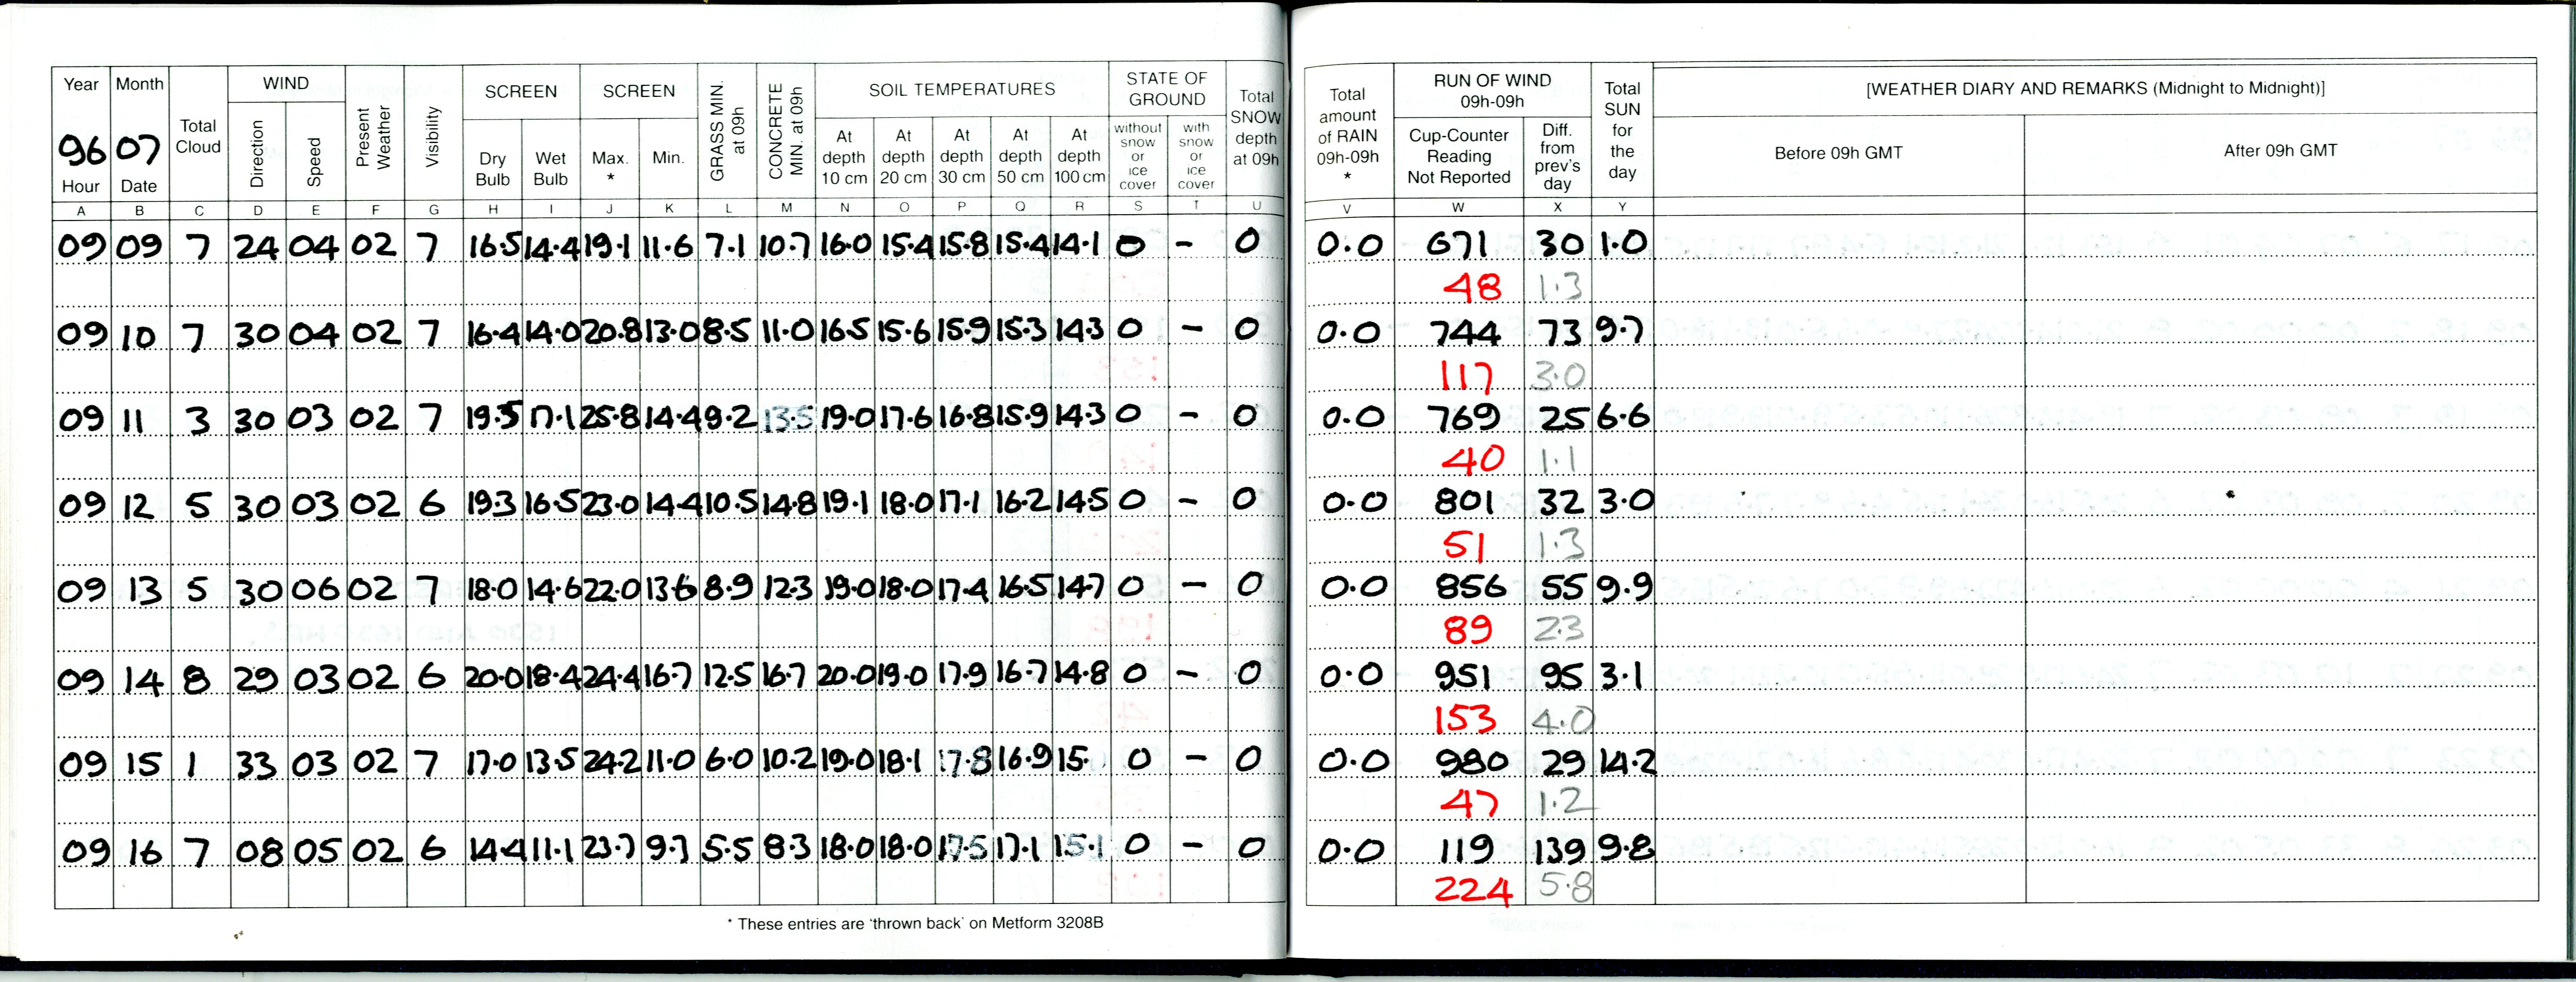 Year Month Total Cloud WIND Present Weather Visibility SCREEN SCREEN GRASS MIN. at 09h CONCRETE MIN. at 09h SOIL TEMPERATURES STATE OF GROUND Total SNOW depth at 09h Total amount of RAIN 09h-09h * RUN OF WIND 09h-09h Total SUN for the day [WEATHER DIARY AND REMARKS (Midnight to Midnight)]
96 07 Direction Speed Dry Bulb Wet Bulb Max. * Min. At depth 10 cm At depth 20 cm At depth 30 cm At depth 50 cm At depth 100 cm without snow or ice cover with snow or ice cover Cup-Counter Reading Not Reported Diff. from prev's day Before 09h GMT After 09h GMT
Hour Date
A B C D E F G H I J K L M N O P Q R S T U V W X Y
09 09 7 24 04 02 7 16.5 14.4 19.1 11.6 7.1 10.7 16.0 15.4 15.8 15.4 14.1 0 - 0 0.0 671 30 1.0
48 1.3
09 10 7 30 04 02 7 16.4 14.0 20.8 13.0 8.5 11.0 16.5 15.6 15.9 15.3 14.3 0 - 0 0.0 744 73 9.7
117 3.0
09 11 3 30 03 02 7 19.5 17.1 25.8 14.4 9.2 13.5 19.0 17.6 16.8 15.9 14.3 0 - 0 0.0 769 25 6.6
40 1.1
09 12 5 30 03 02 6 19.3 16.5 23.0 14.4 10.5 14.8 19.1 18.0 17.1 16.2 14.5 0 - 0 0.0 801 32 3.0
51 1.3
09 13 5 30 06 02 7 18.0 14.6 22.0 13.6 8.9 12.3 19.0 18.0 17.4 16.5 14.7 0 - 0 0.0 856 55 9.9
89 2.3
09 14 8 29 03 02 6 20.0 18.4 24.4 16.7 12.5 16.7 20.0 19.0 17.9 16.7 14.8 0 - 0 0.0 951 95 3.1
153 4.0
09 15 1 33 03 02 7 17.0 13.5 24.2 11.0 6.0 10.2 19.0 18.1 17.8 16.9 15. 0 - 0 0.0 980 29 14.2
47 1.2
09 16 7 08 05 02 6 14.4 11.1 23.7 9.7 5.5 8.3 18.0 18.0 17.5 17.1 15.1 0 - 0 0.0 119 139 9.8
224 5.8
* These entries are 'thrown back' on Metform 3208B